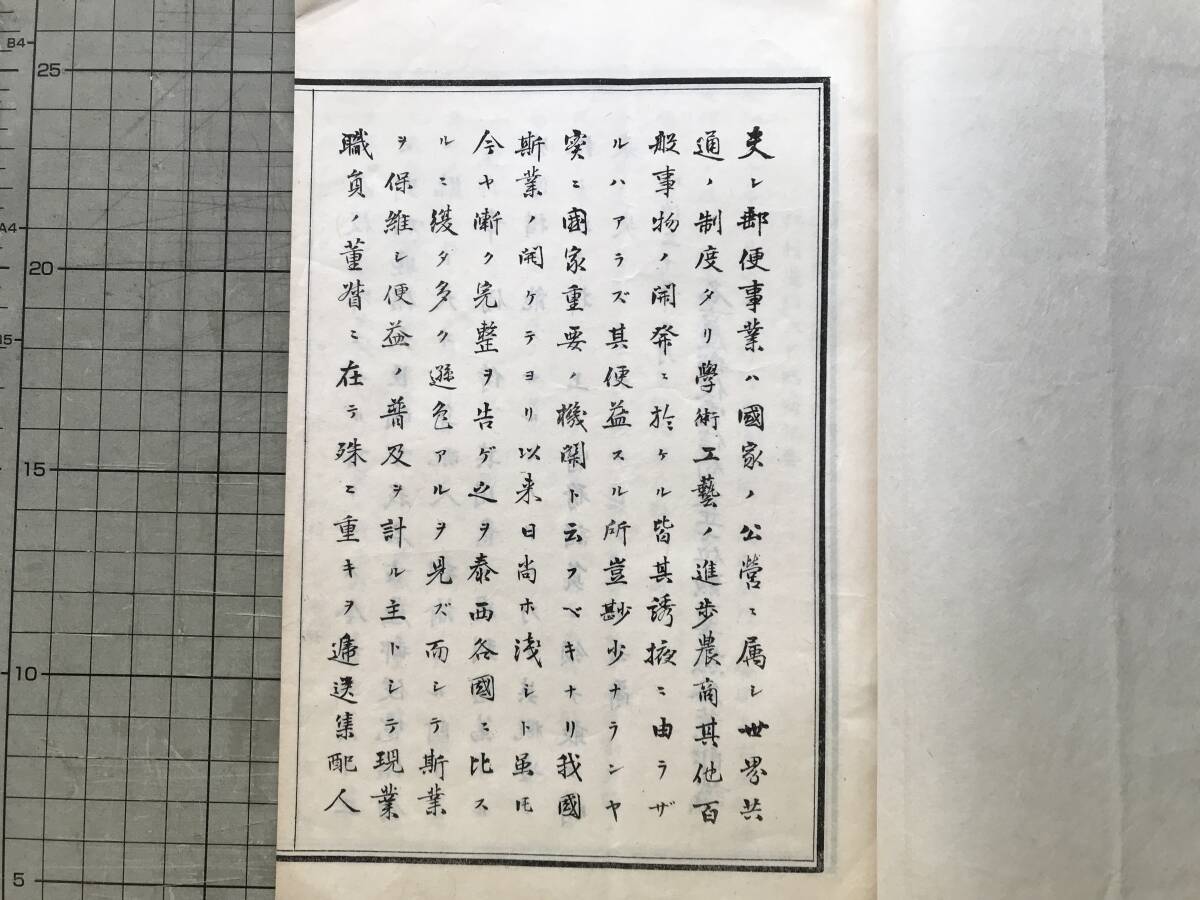 夫レ郵便事業ハ國家ノ公營ニ属シ世界共
通ノ制度タリ學術工藝ノ進歩農商其他百
般事物ノ開発ニ於ケル皆其誘掖ニ由ラザ
ルハアラズ其便益スル所豈尠少ナランヤ
実ニ國家重要ノ機関ト云フベキナリ我國
斯業ノ開ケテヨリ以来日尚ホ淺シト虽𪜈
今ヤ漸ク完整ヲ告ゲ之ヲ泰西各國ニ比ス
ルニ後ダ多ク遜色アルヲ見ズ而シテ斯業
ヲ保維シ便益ノ普及ヲ計ル主トシテ現業
職員ノ董督ニ在テ殊ニ重キヲ逓送集配人
B4
25
A4
20
B5
15
10
5